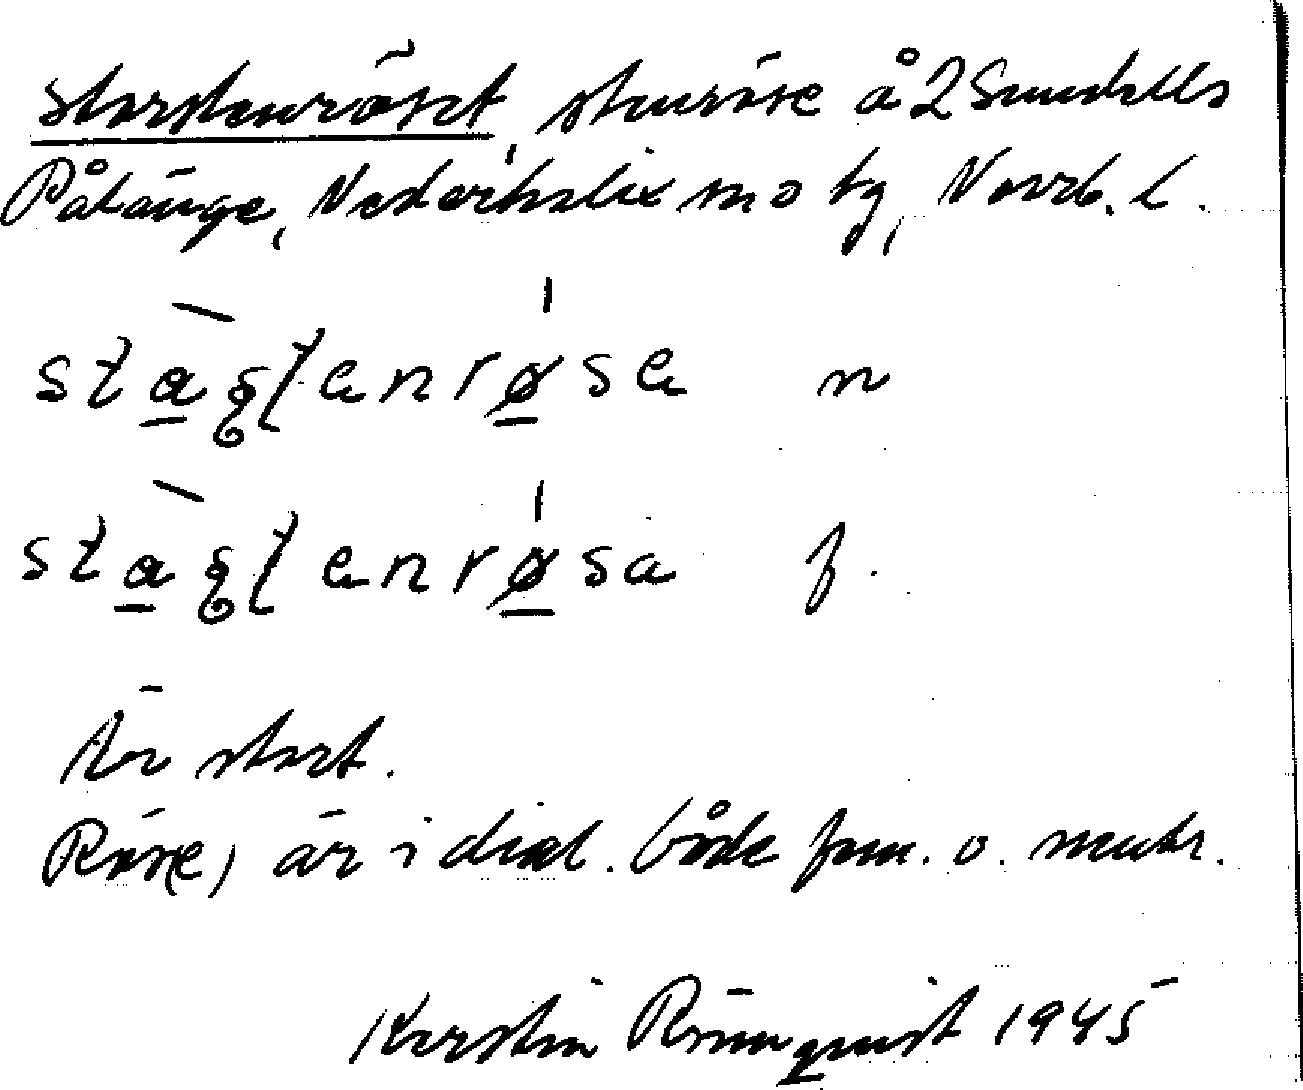 Storstenröset, stenröse å 2 Sundells
Påläng​e, Nederkalix sn o tg, Norrb. l.
stasṭenrøse n
stasṭenrøsa f.
Är stort.
Rös(e) är i dial. både fem. o. neutr.
Kerstin Rönnquist 1945